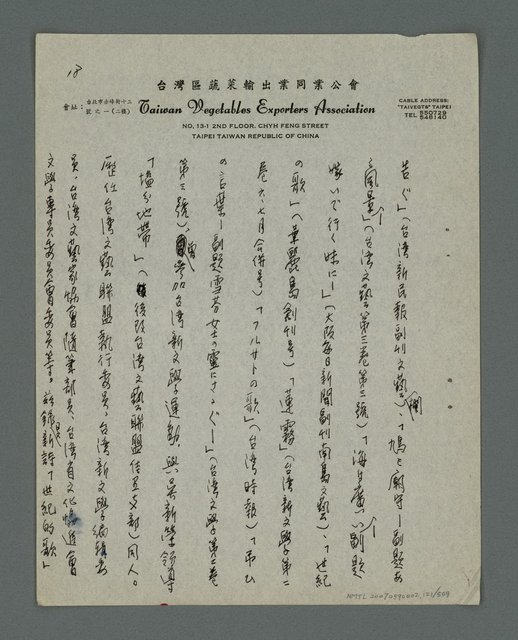 18
台灣區蔬菜輸出業同業公會
會址：台北市赤峰街十三號之一（二樓）
Taiwan Vegetables Exporters Association
CABLE ADDRESS:
"TAIVEGTS" TAIPEI
TEL 550729
548140
NO, 13-1 2ND FLOOR, CHYH FENG STREET
TAIPEI TAIWAN REPUBLIC OF CHINA
告ぐ」（台湾新民報副刊文藝欄）、「鳩と廟守ー副題
風景」（台湾文藝第三巻第三號）「海
嫁いで行く妹にー」（大阪每日新聞副刊南島文藝）、「世紀
の歌」（華麗島創刊号）「蓮霧」（台湾新文學第二
巻六、七月合併号）「フルサトの歌」（台湾時報）「弔ひ
の言葉ー副題雪芬女士の靈にささぐー」（台湾文學第二巻
第三號）、曾參加台湾新文學運動，與吳新榮領導
「塩分地帶」（後改台湾文藝聯盟佳里支部）同人。
歷任台湾文藝聯盟執行委員、台湾新文學編輯委
員、台湾文藝家協會隨筆部員、台湾省文化協進會
文學專員委員會委員等。茲錄新詩「世紀的歌」
NMTL 20070590002, 121/509